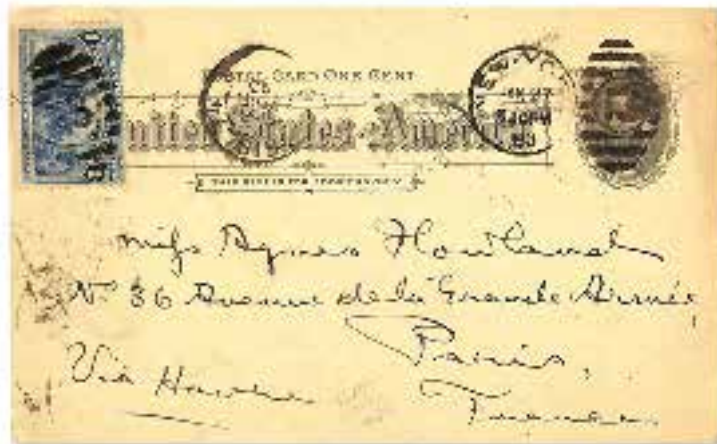 POSTAL CARD ONE CENT
United States of America
THIS SIDE IS FOR ADDRESS ONLY
NEW YO
93
Miss Agnes Howland
No. 36 Avenue de la Grande Armée
Paris,
Via Havre
France